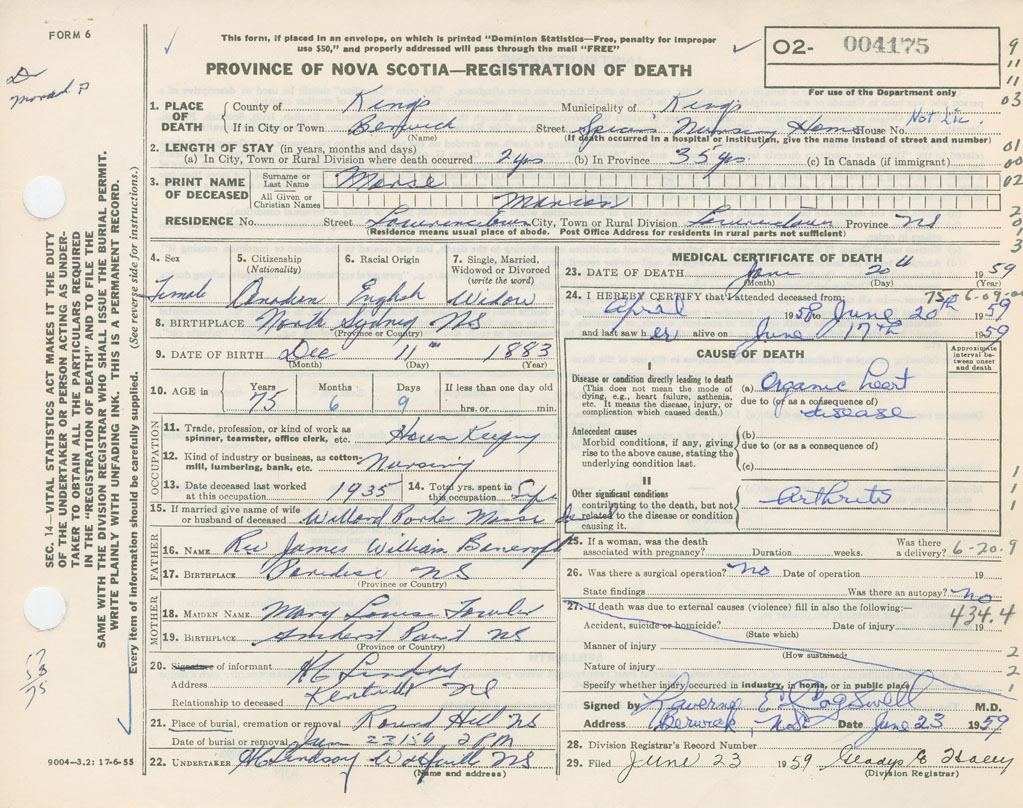 FORM 6
This form, if placed in an envelope, on which is printed "Dominion Statistics—Free, penalty for improper
use $50," and properly addressed will pass through the mail "FREE"
O2- 004175
For use of the Department only
PROVINCE OF NOVA SCOTIA—REGISTRATION OF DEATH
1. PLACE OF DEATH
County of Kings Municipality of Kings
If in City or Town Berwick Street Nursing Home House No.
Not Lic.
(Name) (If death occurred in a hospital or institution, give the name instead of street and number)
2. LENGTH OF STAY (in years, months and days)
(a) In City, Town or Rural Division where death occurred 2 yrs (b) In Province 35 yrs (c) In Canada (if immigrant)
3. PRINT NAME OF DECEASED
Surname or Last Name Morse
All Given or Christian Names Marion
RESIDENCE No. Street Lawrencetown City, Town or Rural Division Lawrencetown Province NS
(Residence means usual place of abode. Post Office Address for residents in rural parts not sufficient)
4. Sex Female
5. Citizenship (Nationality) Canadian
6. Racial Origin English
7. Single, Married, Widowed or Divorced (write the word) Widow
8. BIRTHPLACE North Sydney NS
(Province or Country)
9. DATE OF BIRTH Dec 11 1883
(Month) (Day) (Year)
10. AGE in Years 75 Months 6 Days 9 If less than one day old hrs. or min.
OCCUPATION
11. Trade, profession, or kind of work as spinner, teamster, office clerk, etc. House Keeping
12. Kind of industry or business, as cotton-mill, lumbering, bank, etc. Nursing
13. Date deceased last worked at this occupation 1935 14. Total yrs. spent in this occupation Life
15. If married give name of wife or husband of deceased Willard Parker Morse
FATHER
16. NAME Rev James William Bancroft
17. BIRTHPLACE Paradise NS
(Province or Country)
MOTHER
18. MAIDEN NAME Mary Louise Fowler
19. BIRTHPLACE Amherst Point NS
(Province or Country)
20. Signature of informant HC Lindsay
Address Kentville NS
Relationship to deceased
21. Place of burial, cremation or removal Round Hill NS
Date of burial or removal June 23 1959 2 PM
22. UNDERTAKER HC Lindsay Wolfville NS
(Name and address)
MEDICAL CERTIFICATE OF DEATH
23. DATE OF DEATH June 20 1959
(Month) (Day) (Year)
24. I HEREBY CERTIFY that I attended deceased from:
April 1958 to June 20th 1959
and last saw her alive on June 17th 1959
CAUSE OF DEATH
Approximate interval between onset and death
I
Disease or condition directly leading to death
(This does not mean the mode of dying, e.g., heart failure, asthenia, etc. It means the disease, injury, or complication which caused death.)
(a) Organic heart disease
due to (or as a consequence of)
Antecedent causes
Morbid conditions, if any, giving rise to the above cause, stating the underlying condition last.
(b)
due to (or as a consequence of)
(c)
II
Other significant conditions contributing to the death, but not related to the disease or condition causing it.
Arthritis
25. If a woman, was the death associated with pregnancy? Duration weeks. Was there a delivery? 6-20.9
26. Was there a surgical operation? No Date of operation 19
State findings Was there an autopsy? No
27. If death was due to external causes (violence) fill in also the following:— 434.4
Accident, suicide or homicide? Date of injury 19
(State which)
Manner of injury
(How sustained)
Nature of injury
Specify whether injury occurred in industry, in home, or in public place
Signed by Laverne E Cogswell M.D.
Address Berwick, N.S. Date June 23 1959
28. Division Registrar's Record Number
29. Filed June 23 1959 Gladys E
(Division Registrar)
SEC. 14—VITAL STATISTICS ACT MAKES IT THE DUTY
OF THE UNDERTAKER OR PERSON ACTING AS UNDER-
TAKER TO OBTAIN ALL THE PARTICULARS REQUIRED
IN THE "REGISTRATION OF DEATH" AND TO FILE THE
SAME WITH THE DIVISION REGISTRAR WHO SHALL ISSUE THE BURIAL PERMIT.
WRITE PLAINLY WITH UNFADING INK. THIS IS A PERMANENT RECORD.
Every item of information should be carefully supplied. (See reverse side for instructions.)
9004—3.2: 17-6-55